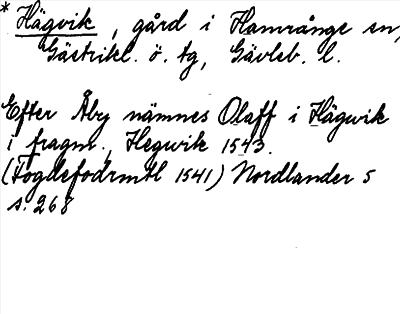 * Hägvik, gård i Hamrånge sn,
Gästrikl. ö. tg, Gävleb. l.
Efter Åby nämnes Olaff i Hägwik
i fragm., Hegwik 1543.
(Fogdefodrmtl 1541) Nordlander 5
s. 268